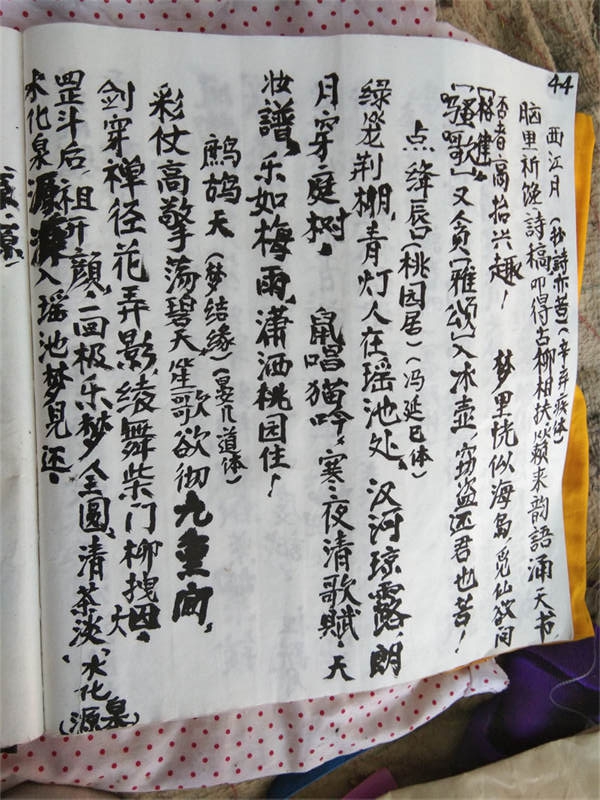 44
西江月(抄詩亦苦)(辛弃疾体)
脑里祈饶詩槁叩得古柳相扶簌来韵語涌天书
否者高抬兴趣！ 梦里恍似海岛,觅仙欲问
【裕健】
【骚歌】又负【雅頌】入冰壶,窃盗还君也苦！
点绛辰口(桃园居)(冯延巳体)
绿笼荆棚,青灯人在瑶池处,汉河琼露,朗
月穿庭树, 鼠唱猫吟,寒夜清歌赋,天
妆譜,乐如梅雨,潇洒桃园住！
鹧鸪天(梦结缘)(晏几道体)
彩仗高擎荡碧天,笙歌欲彻九重间,
剑穿禅径花弄影,绫舞柴门柳拽烟,
罡斗后,祖开颜,二回极乐梦全圆,清茶淡,水化
(源泉)
水化泉源源入瑶池梦見还,
源源